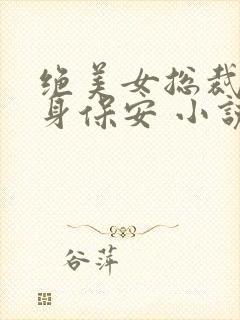 绝美女总裁
身保安 小说
谷萍